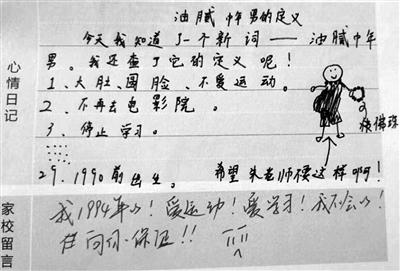 油腻中年男的定义
今天我知道了一个新词——油腻中年
男。我还查了它的定义呢!
1、大肚、圆脸、不爱运动。
2、不再去电影院。
3、停止学习。
29.1990前出生。
希望朱老师不要这样啊!
核佛珠
心情日记
我1994年的!爱运动!爱学习!我不会的!
向你保证!!
家校留言